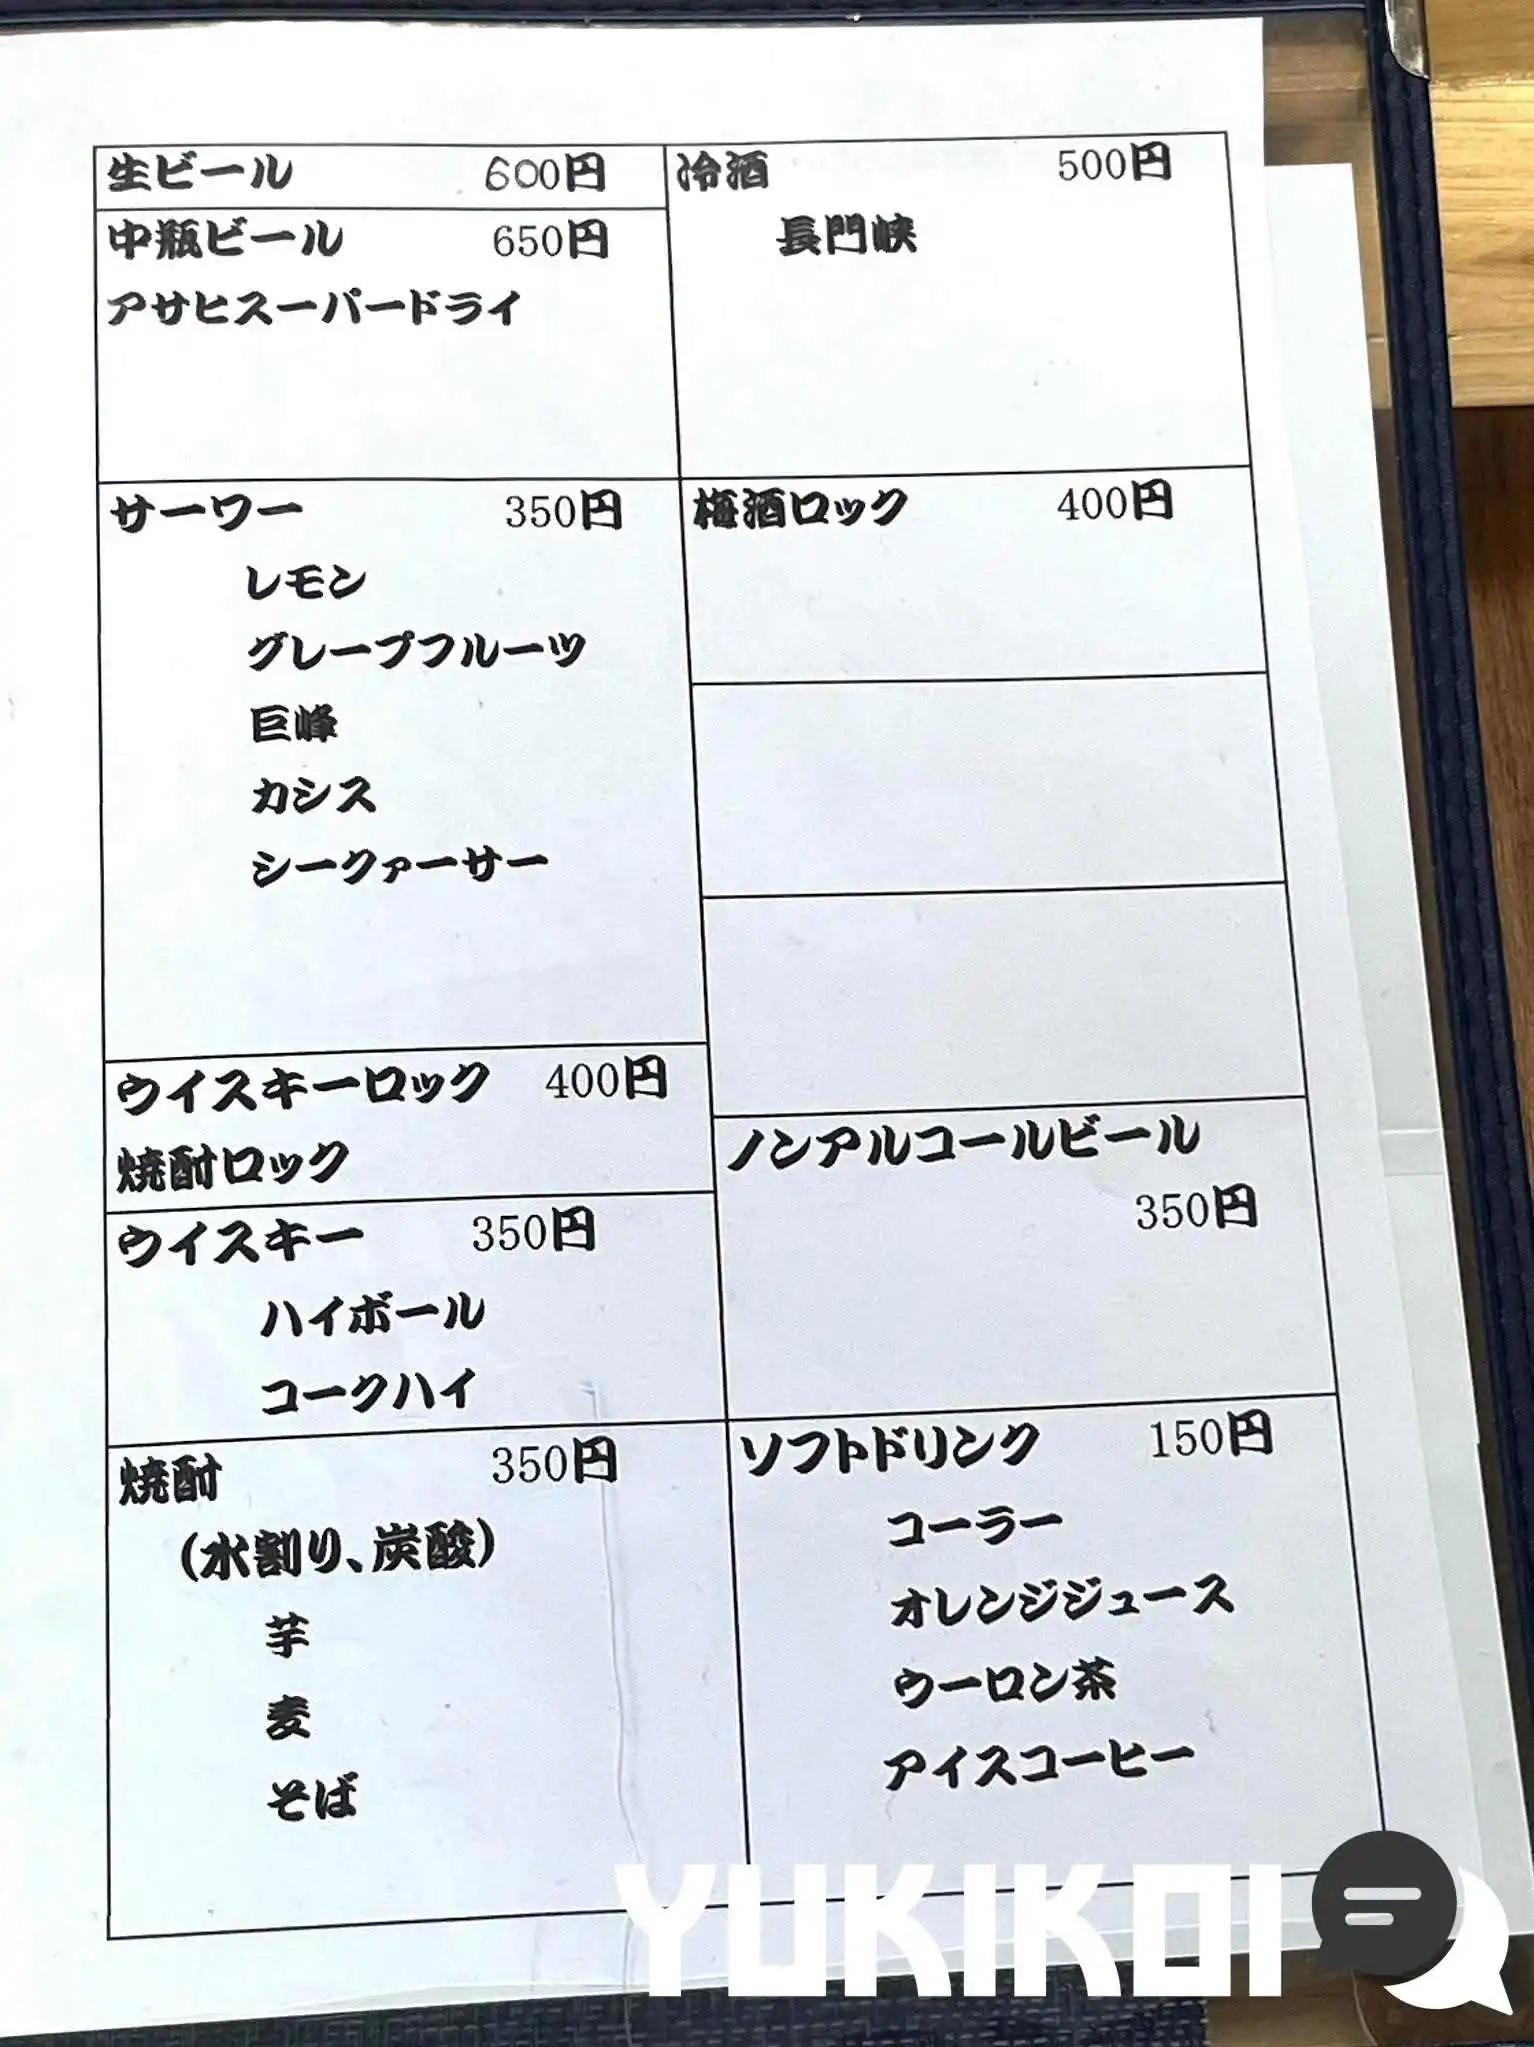 生ビール 600円
中瓶ビール 650円
アサヒスーパードライ
サーワー 350円
レモン
グレープフルーツ
巨峰
カシス
シークァーサー
ウイスキーロック 400円
焼酎ロック
ウイスキー 350円
ハイボール
コークハイ
焼酎 350円
(水割り、炭酸)
芋
麦
そば
冷酒 500円
長門峡
梅酒ロック 400円
ノンアルコールビール
350円
ソフトドリンク 150円
コーラー
オレンジジュース
ウーロン茶
アイスコーヒー
YUKIKOI